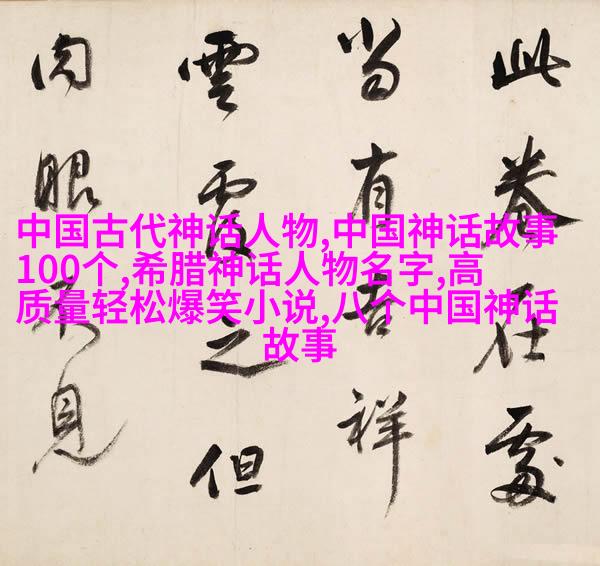 此卷在處
當有吉祥
雲覆之但
肉眼不見
中国古代神话人物,中国神话故事
100个,希腊神话人物名字,高
质量轻松爆笑小说,八个中国神话
故事